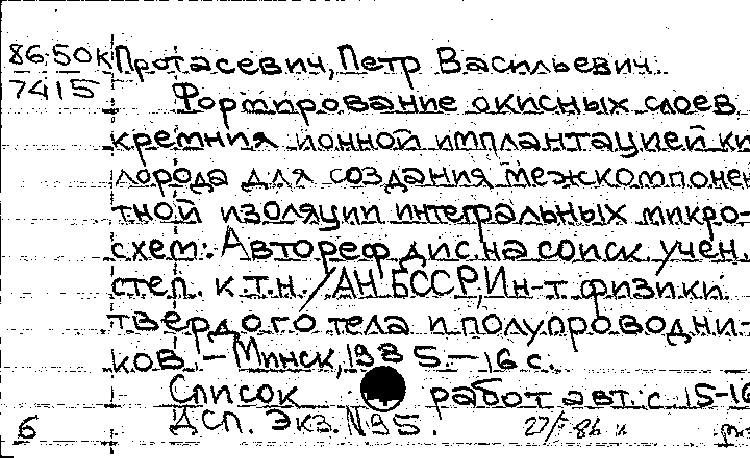 86-50к Протасевич, Петр Васильевич.
7415
Формирование окисных слоев
кремния ионной имплантацией ки
лорода для создания межкомпонен
тной изоляции интегральных микро-
схем: Автореф дис. на соиск учен.
степ. к.т.н. / АН БССР, Ин-т физики
твердого тела и полупроводни-
ков. - Минск, 1985. - 16 с.
Список работ авт.: с 15-16
6 ДСП. Экз. N95. 27/ 86